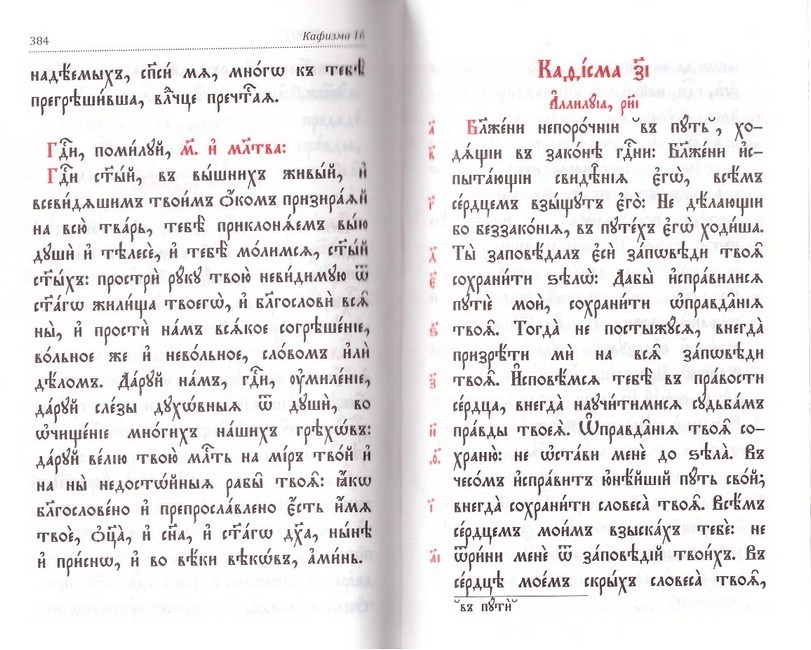 384
Кафизма 16
надѣ́емыхъ, сп҃си́ мѧ, мно́гѡ къ тебѣ̀
прегрѣши́вша, влⷣчце пречⷭ҇таѧ.
Гдⷭ҇и, поми́луй, м҃. и҆ мл҃тва:
Гдⷭ҇и ст҃ы́й, въ вы́шнихъ живы́й, и҆
всеви́дѧщимъ твои́мъ ѻ҆́комъ призира́ѧй
на всю̀ тва́рь, тебѣ̀ приклонѧ́емъ вы́ю
дꙋшѝ и҆ тѣлесѐ, и҆ тебѣ̀ мо́лимсѧ, ст҃ы́й
ст҃ы́хъ: прострѝ рꙋ́кꙋ твою̀ неви́димꙋю ѿ
ст҃а́гѡ жили́ща твоегѡ̀, и҆ благословѝ всѧ̑
ны̀, и҆ простѝ на́мъ всѧ́кое согрѣше́нїе,
во́льное же и҆ нево́льное, сло́вомъ и҆лѝ
дѣ́ломъ. Да́рꙋй на́мъ, гдⷭ҇и, ᲂу҆миле́нїе,
да́рꙋй сле́зы дꙋхѡ́вныѧ ѿ дꙋшѝ, во
ѡ҆чище́нїе мно́гихъ на́шихъ грѣхѡ́въ:
да́рꙋй ве́лїю твою̀ млⷭ҇ть на мі́ръ тво́й и҆
на ны̀ недостѡ́йныѧ рабы̑ твоѧ̑: ꙗ҆́кѡ
бл҃гослове́но и҆ препросла́влено є҆́сть и҆́мѧ
твоѐ, ѻ҆ц҃а̀, и҆ сн҃а, и҆ ст҃а́гѡ дх҃а, ны́нѣ
и҆ при́снѡ, и҆ во вѣ́ки вѣкѡ́въ, а҆ми́нь.
Каѳі́сма з҃і
А҆ллилꙋ́їа, рⷪ҇і
а҃ Бл҃же́ни непоро́чнїи ̏въ пꙋ́ть̏, хо-
в҃ дѧ́щїи въ зако́нѣ гдⷭ҇ни: Бл҃же́ни и҆с-
пыта́ющїи свидѣ̑нїѧ є҆гѡ̀, всѣ́мъ
г҃ се́рдцемъ взы́щꙋтъ є҆го̀: Не дѣ́лающїи
бо беззако́нїѧ, въ пꙋте́хъ є҆гѡ̀ ходи́ша.
д҃ Ты̀ заповѣ́далъ є҆сѝ за́пѡвѣди твоѧ̑
є҃ сохрани́ти ѕѣлѡ̀: Дабы̀ и҆спра́вилисѧ
пꙋтїѐ моѝ, сохрани́ти ѡ҆правда̑нїѧ
ѕ҃ твоѧ̑. Тогда̀ не постыжꙋ́сѧ, внегда̀
призрѣ́ти мѝ на всѧ̑ за́пѡвѣди
з҃ твоѧ̑. И҆сповѣ́мсѧ тебѣ̀ въ пра́вости
се́рдца, внегда̀ наꙋчи́тимисѧ сꙋдьба́мъ
и҃ пра́вды твоеѧ̀. Ѡ҆правда̑нїѧ твоѧ̑ со-
ѳ҃ храню̀: не ѡ҆ста́ви менѐ до ѕѣла̀. Въ
чесо́мъ и҆спра́витъ ю҆нѣ́йшїй пꙋ́ть сво́й;
і҃ внегда̀ сохрани́ти словеса̀ твоѧ̑. Всѣ́мъ
се́рдцемъ мои́мъ взыска́хъ тебѐ: не
а҃і ѿри́ни менѐ ѿ за́повѣдїй твои́хъ. Въ
се́рдцѣ мое́мъ скры́хъ словеса̀ твоѧ̑,
̏въ пꙋтѝ̏